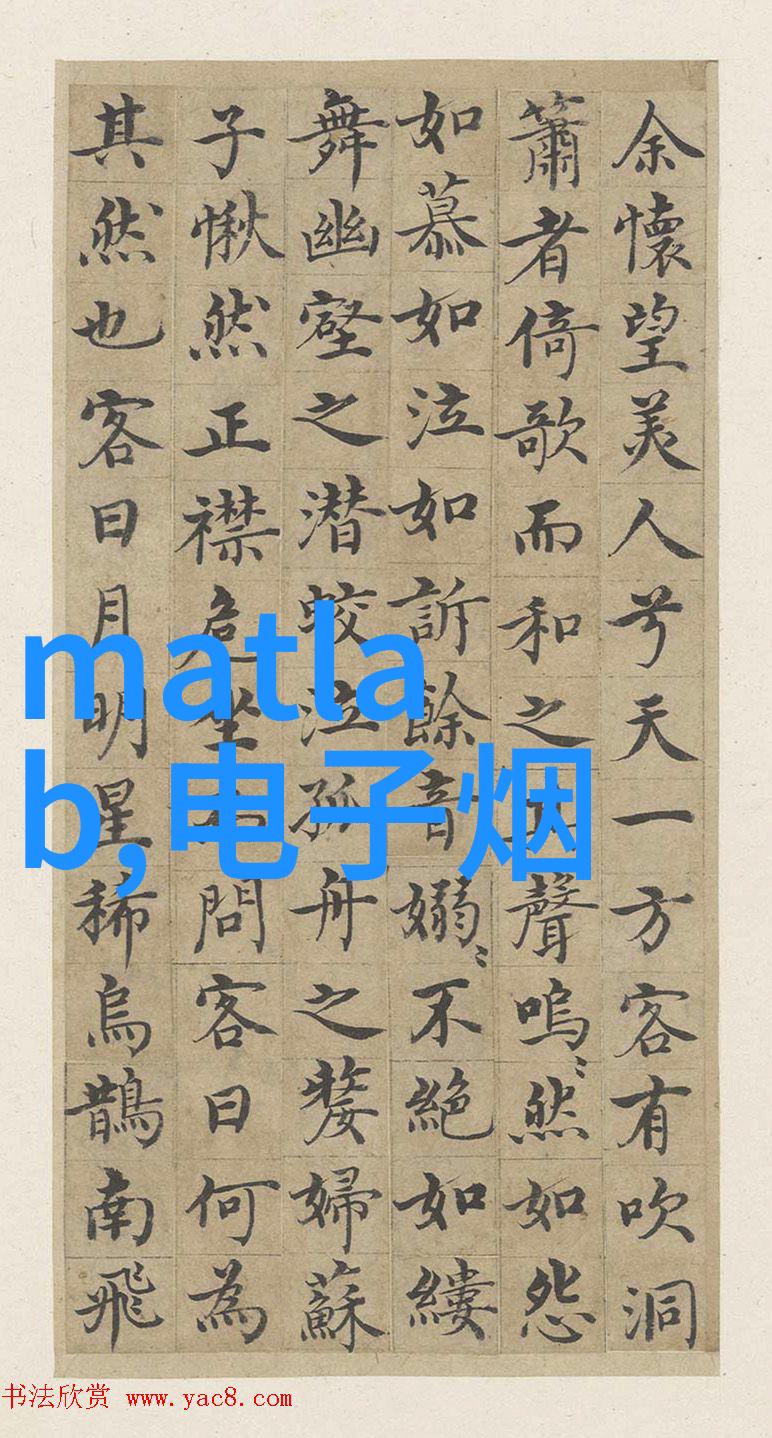 余懷望美人兮天一方客有吹洞
簫者倚歌而和之其聲嗚〻然如怨
如慕如泣如訴餘音嫋〻不絕如縷
舞幽壑之潜蛟泣孤舟之嫠婦蘇
子愀然正襟危坐而問客曰何為
其然也客曰月明星稀烏鵲南飛
matla
b,电子烟
书法欣赏 www.yac8.com